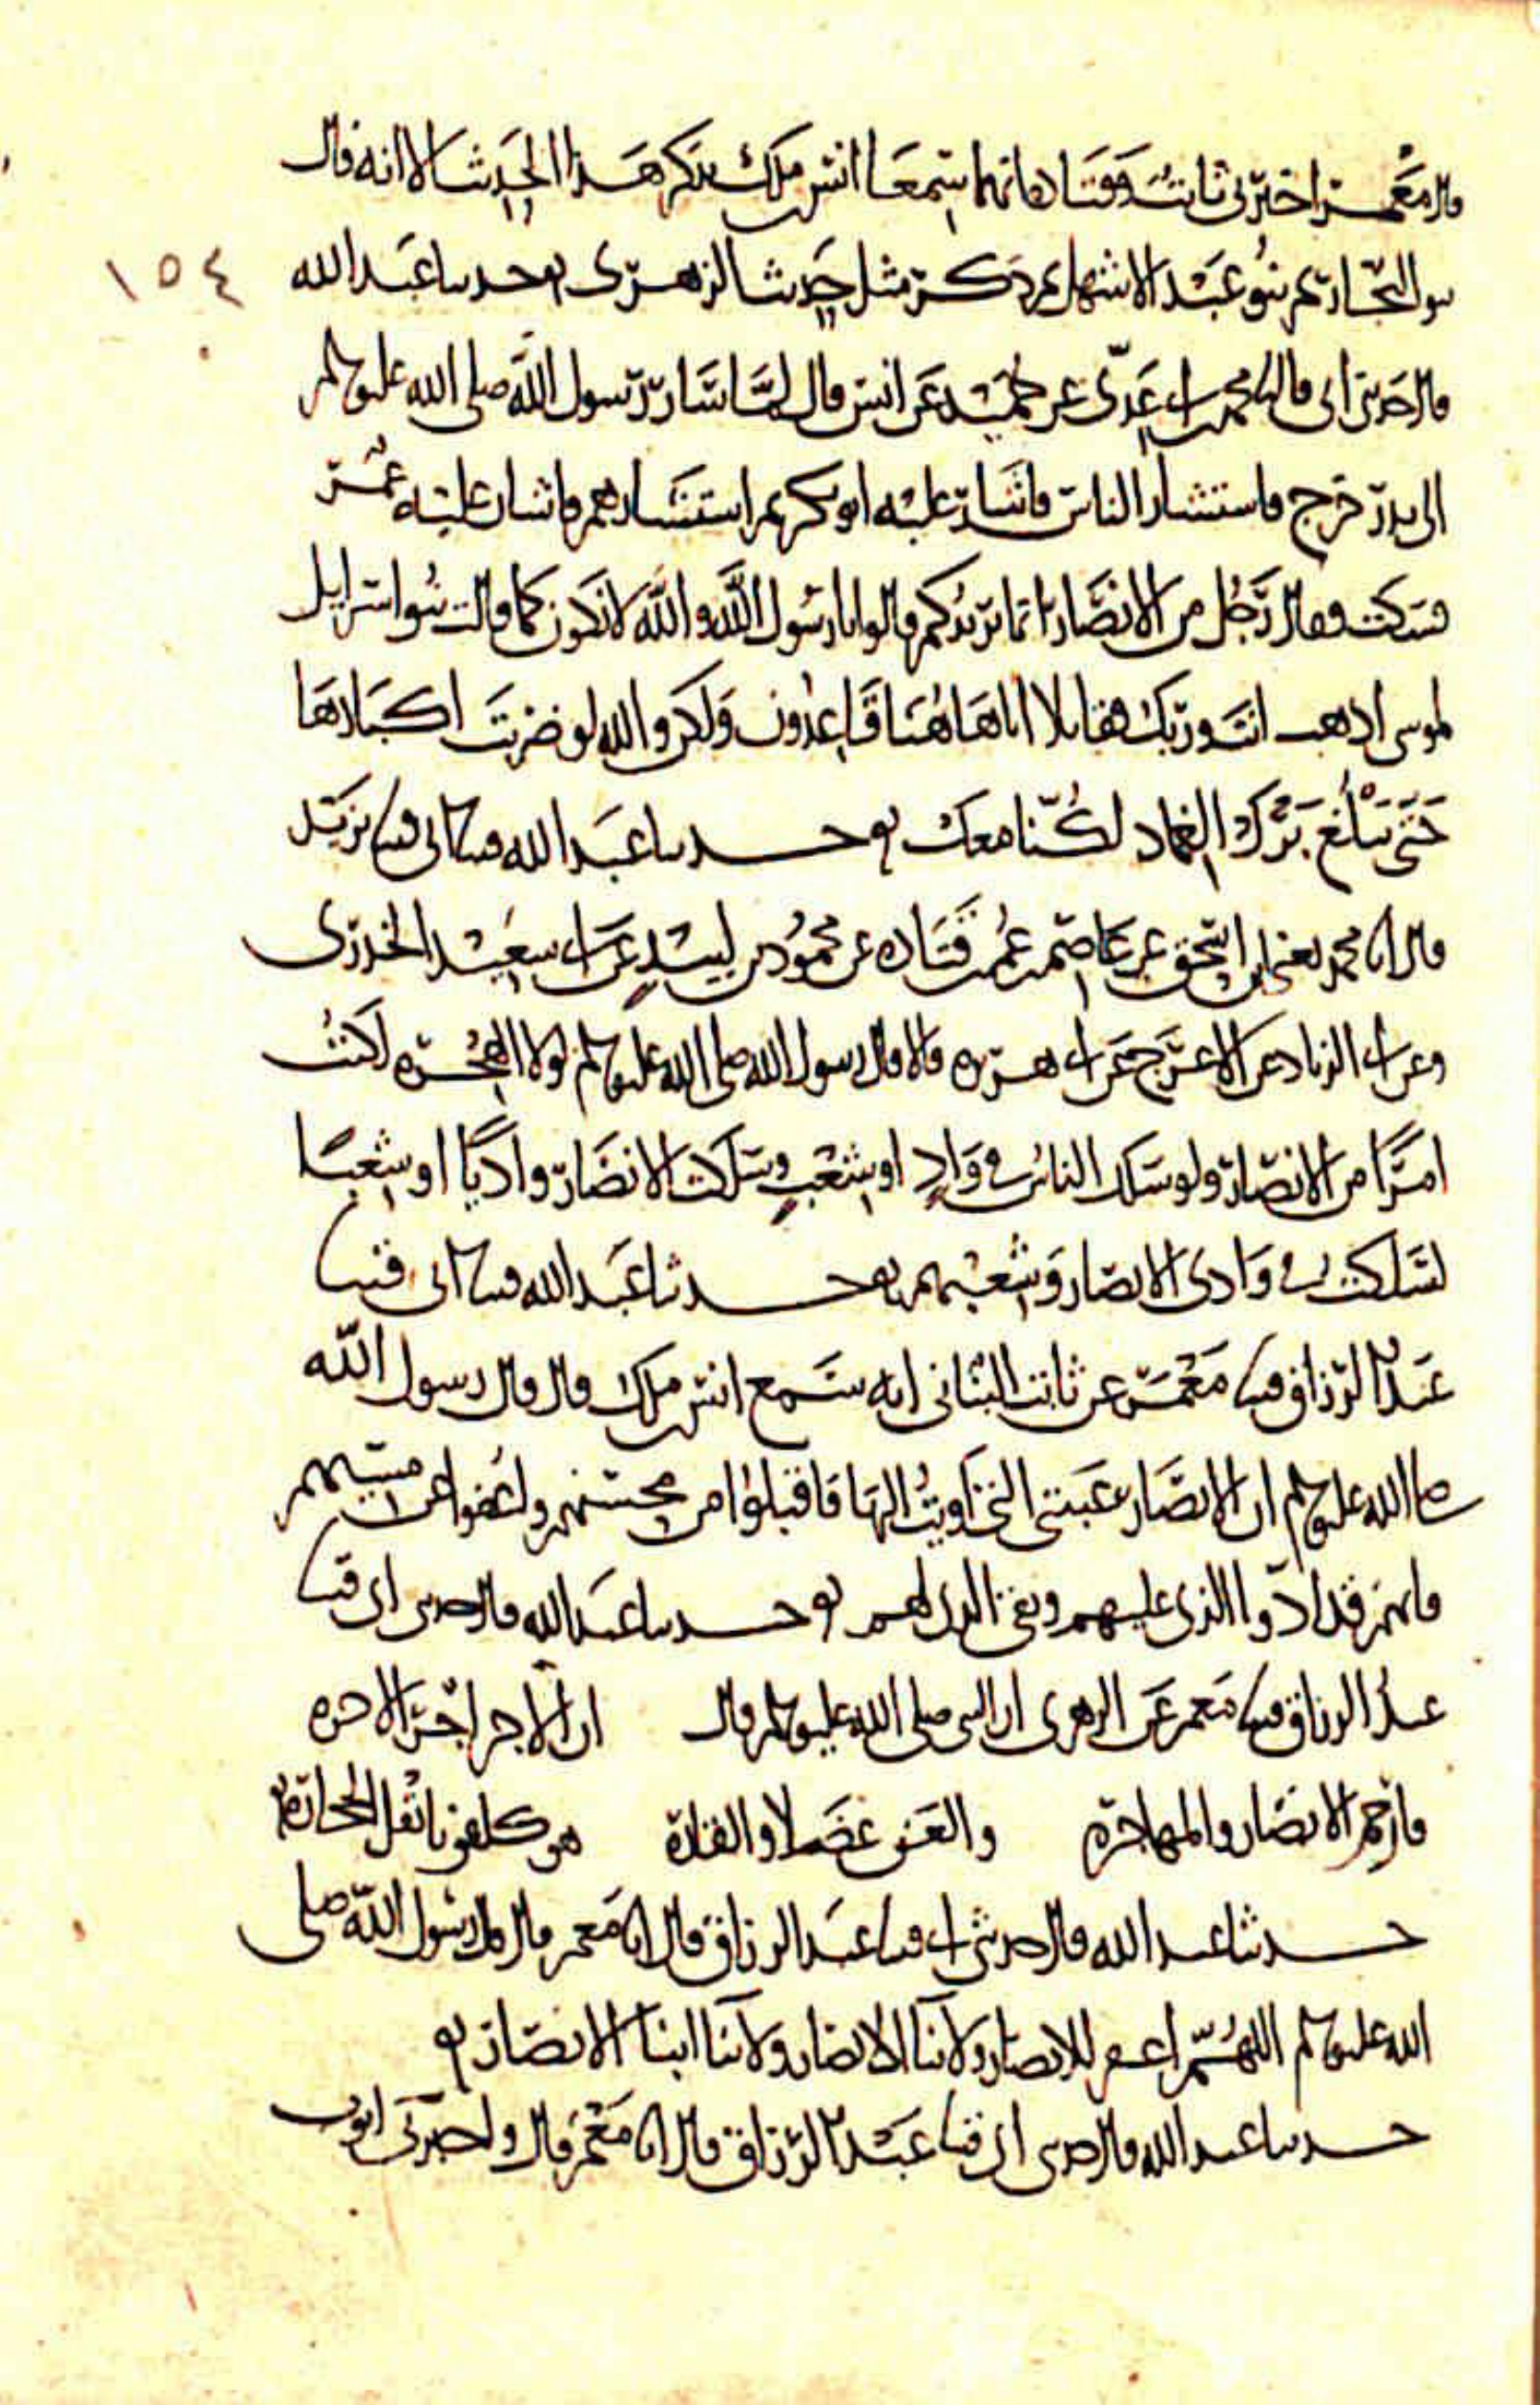 قال معمر اخبرني ثابت وقتادة انهما سمعا انس بن ملك يذكر هذا الحديث الا انه قال
بنو النجار ثم بنو عبد الاشهل ثم ذكر مثل حديث الزهري حدثنا عبد الله
١٥٤
قال حدثني ابي قال نا محمد بن ابي عدي عن حميد عن انس قال لما سار رسول الله صلى الله عليه وسلم
الى بدر خرج فاستشار الناس فاشار عليه ابو بكر ثم استشارهم فاشار عليه عمر
فسكت فقال رجل من الانصار انما يريدكم قالوا يا رسول الله والله لا نكون كما قالت بنو اسرايل
لموسى اذهب انت وربك فقاتلا انا هاهنا قاعدون ولكن والله لو ضربت اكبادها
حتى تبلغ برك الغماد لكنا معك حدثنا عبد الله قثنا ابي قثنا يزيد
قال انا محمد يعني ابن اسحق عن عاصم بن عمر بن قتاده عن محمود بن لبيد عن ابي سعيد الخدري
وعن ابي الزناد عن الاعرج عن ابي هريره قالا قال رسول الله صلى الله عليه وسلم لولا الهجره لكنت
امرًا من الانصار ولو سلك الناس في وادٍ او شعبٍ وسلكت الانصار واديًا او شعبًا
لسلكت في وادي الانصار وشعبهم حدثنا عبد الله قثنا ابي قثنا
عبد الرزاق قثنا معمر عن ثابت البناني انه سمع انس بن ملك قال قال رسول الله
صلى الله عليه وسلم ان الانصار عيبتي التي اويت اليها فاقبلوا من محسنهم واعفوا عن مسيهم
فانهم قد ادوا الذي عليهم وبقي الذي لهم حدثنا عبد الله قال حدثني ابي قثنا
عبد الرزاق قثنا معمر عن الزهري ان النبي صلى الله عليه وسلم قال ان الاجر اجر الاخره
فارحم الانصار والمهاجره والعن عضلا والقارة هم كلفونا نقل الحجارة
حدثنا عبد الله قال حدثني ابي قثنا عبد الرزاق قال انا معمر قال قال رسول الله صلى
الله عليه وسلم اللهم اغفر للانصار ولابنا الانصار ولابنا ابنا الانصار
حدثنا عبد الله قال حدثني ابي قثنا عبد الرزاق قال انا معمر قال واخبرني ايوب